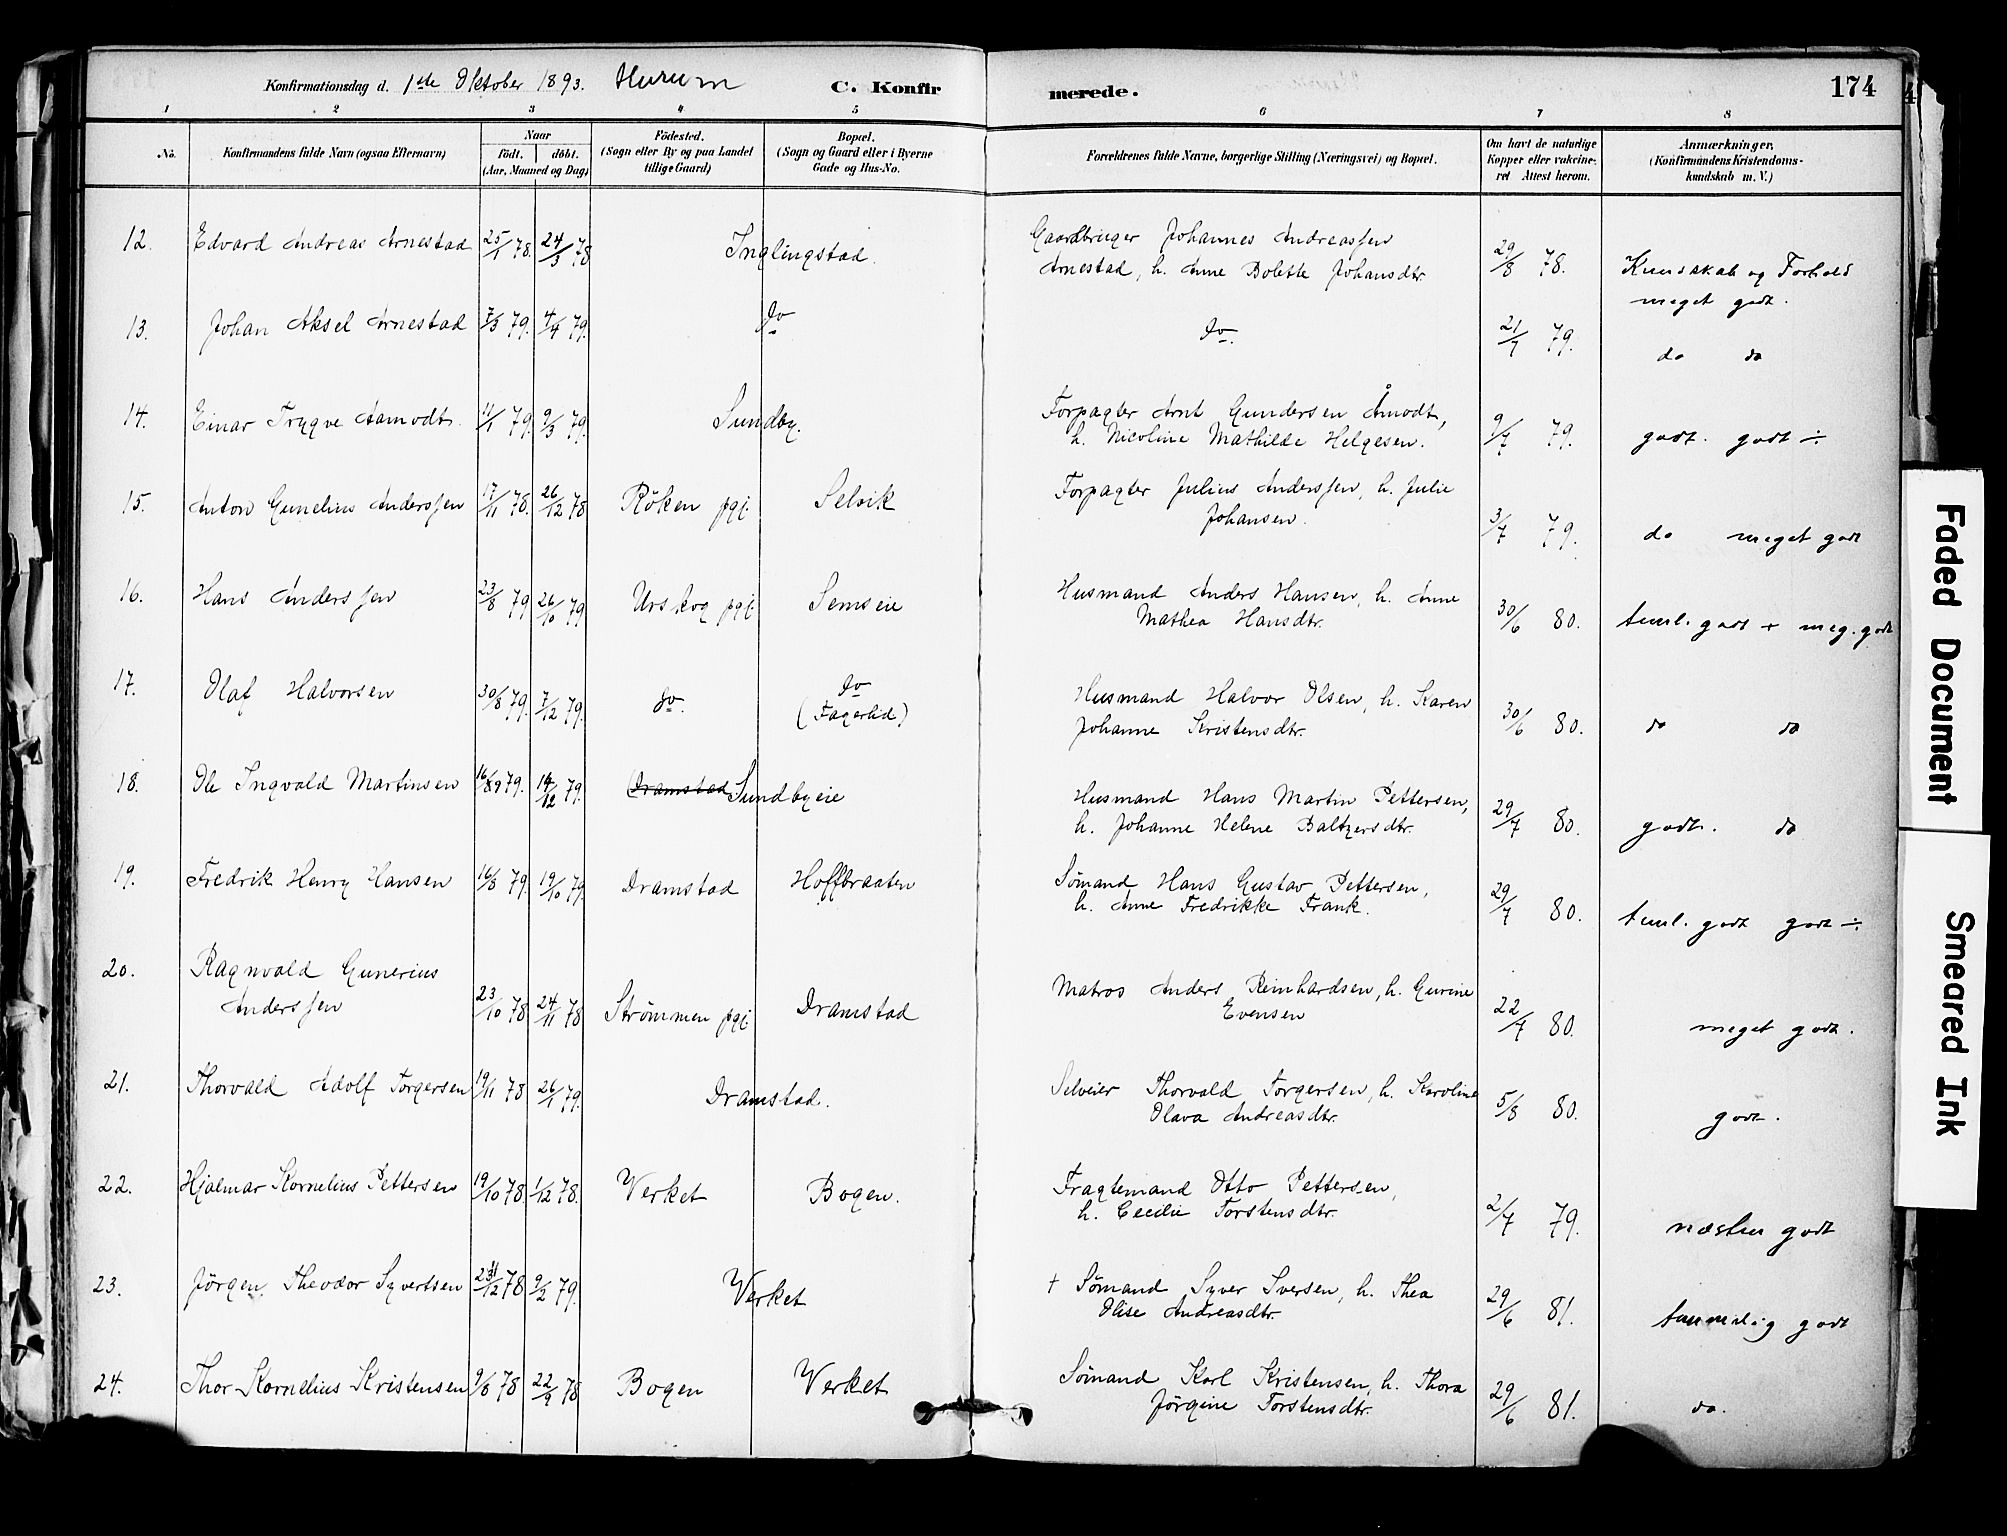 Konfirmationsdag d. 1ste Oktober 1893. Hurum C. Konfirmerede. 174
1 2 3 4 5 6 7 8
No. Konfirmandens fulde Navn (ogsaa Efternavn) Naar födt. döbt. (Aar, Maaned og Dag) Födested. (Sogn eller By og paa Landet tillige Gaard) Bopæl. (Sogn og Gaard eller i Byerne Gade og Hus-No. Forældrenes fulde Navne, borgerlige Stilling (Næringsvei) og Bopæl. Om havt de naturlige Kopper eller vakcineret Attest herom. Anmærkninger. (Konfirmandens Kristendomskundskab m. V.)
12. Edvard Andreas Arnestad 25/1 78. 24/3 78 Inglingstad. Gaardbruger Johannes Andreassen
Arnestad, h. Anne Bolette Johansdtr. 29/8 78. Kundskab og Forhold
meget godt.
13. Johan Aksel Arnestad 7/3 79. 4/4 79. do do. 21/7 79. do do
14. Einar Trygve Aamodt. 11/1 79. 9/3 79. Sundby. Forpagter Arnt Gundersen Åmodt,
h. Nicoline Mathilde Helgesen. 9/7 79. godt. godt ÷
15. Anton Gunelius Anderssen 17/11 78. 26/12 78 Röken pgj. Selvik Forpagter Julius Anderssen, h. Julie
Johansen. 3/7 79. do meget godt
16. Hans Anderssen 23/8 79 26/10 79 Urskog pgj. Semseie Husmand Anders Hansen, h. Anne
Mathea Hansdtr. 30/6 80. teml. godt + meg. godt
17. Olaf Halvorsen 30/8 79. 7/12 79. do. do
(Fagerlid) Husmand Halvor Olsen, h. Karen
Johanne Kristensdtr. 30/6 80. do do
18. Ole Ingvald Martinsen 16/89 79. 14/12 79. (Dramstad Sundbyeie Husmand Hans Martin Pettersen,
h. Johanne Helene Baltzersdtr. 29/7 80. godt. do
19. Fredrik Henry Hansen 16/8 79 19/10 79. Dramstad Hoffbraaten Sømand Hans Gustav Pettersen,
h. Anne Fredrikke Frank. 29/7 80. teml. godt godt ÷
20. Ragnvald Gunerius
Anderssen 23/10 78 24/11 78 Strømmen pgj. Dramstad Matros Anders Reinhardsen, h. Gurine
Evensen 22/7 80. meget godt.
21. Thorvald Adolf Torgersen 19/11 78 26/1 79. Dramstad. Selveier Thorvald Torgersen, h. Karoline
Olava Andreasdtr. 5/8 80. godt.
22. Hjalmar Kornelius Pettersen 19/10 78 1/12 78. Verket Bogen. Fragtemand Otto Pettersen,
h. Cecilie Torstensdtr. 2/7 79. næsten godt
23. Jörgen Theodor Syvertsen 78 9/2 79. Verket † Sömand Syver Iversen, h. Thea
Olise Andreasdtr. 29/6 81. temmelig godt
24. Thor Kornelius Kristensen 9/8 78 22/9 78 Bogen Verket Sömand Karl Kristensen, h. Thora
Jörgine Torstensdtr. 29/6 81. do.
Faded Document
Smeared Ink